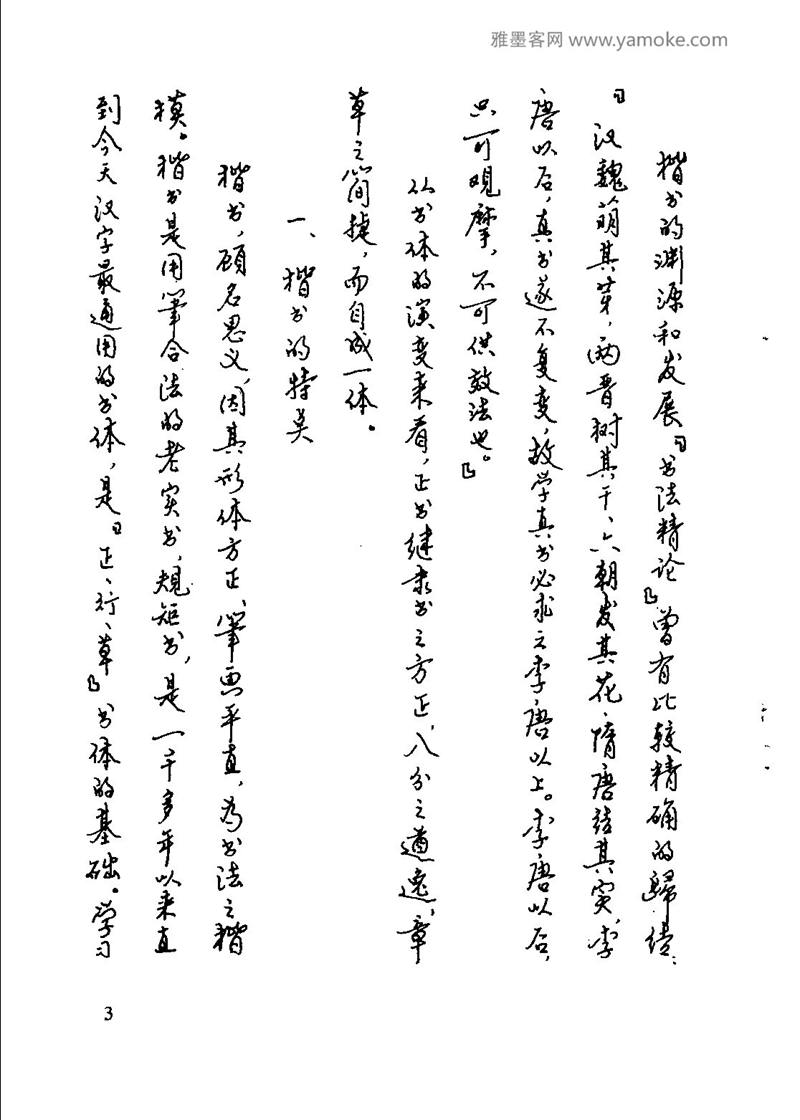 雅墨客网 www.yamoke.com
楷书的渊源和发展『书法精论』曾有比较精确的归结：
『汉魏萌其芽，两晋树其干、六朝发其花，隋唐结其实，李
唐以后，真书遂不复变，故学真书必求之李唐以上。李唐以后，
只可观摩，不可供效法也。』
从书体的演变来看，正书继隶书之方正，八分之遒逸，章
草之简捷，而自成一体。
一、楷书的特美
楷书，顾名思义，因其形体方正、筆画平直，为书法之楷
模。楷书是用筆合法的老实书，规矩书，是一千多年以来直
到今天汉字最通用的书体，是『正、行、草』书体的基础。学习
3